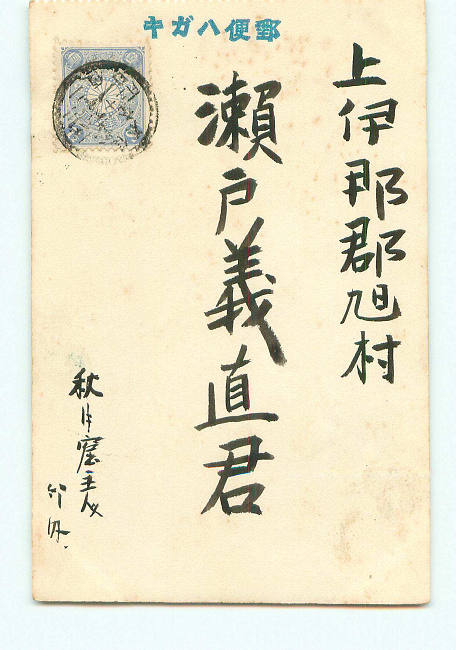 郵便ハガキ
上伊那郡旭村
瀨戸義直君
秋月
主人